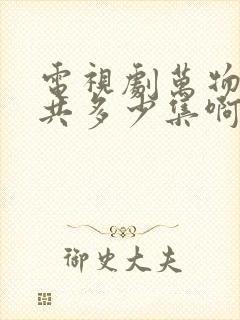 電視劇萬物
共多少集啊
御史大夫